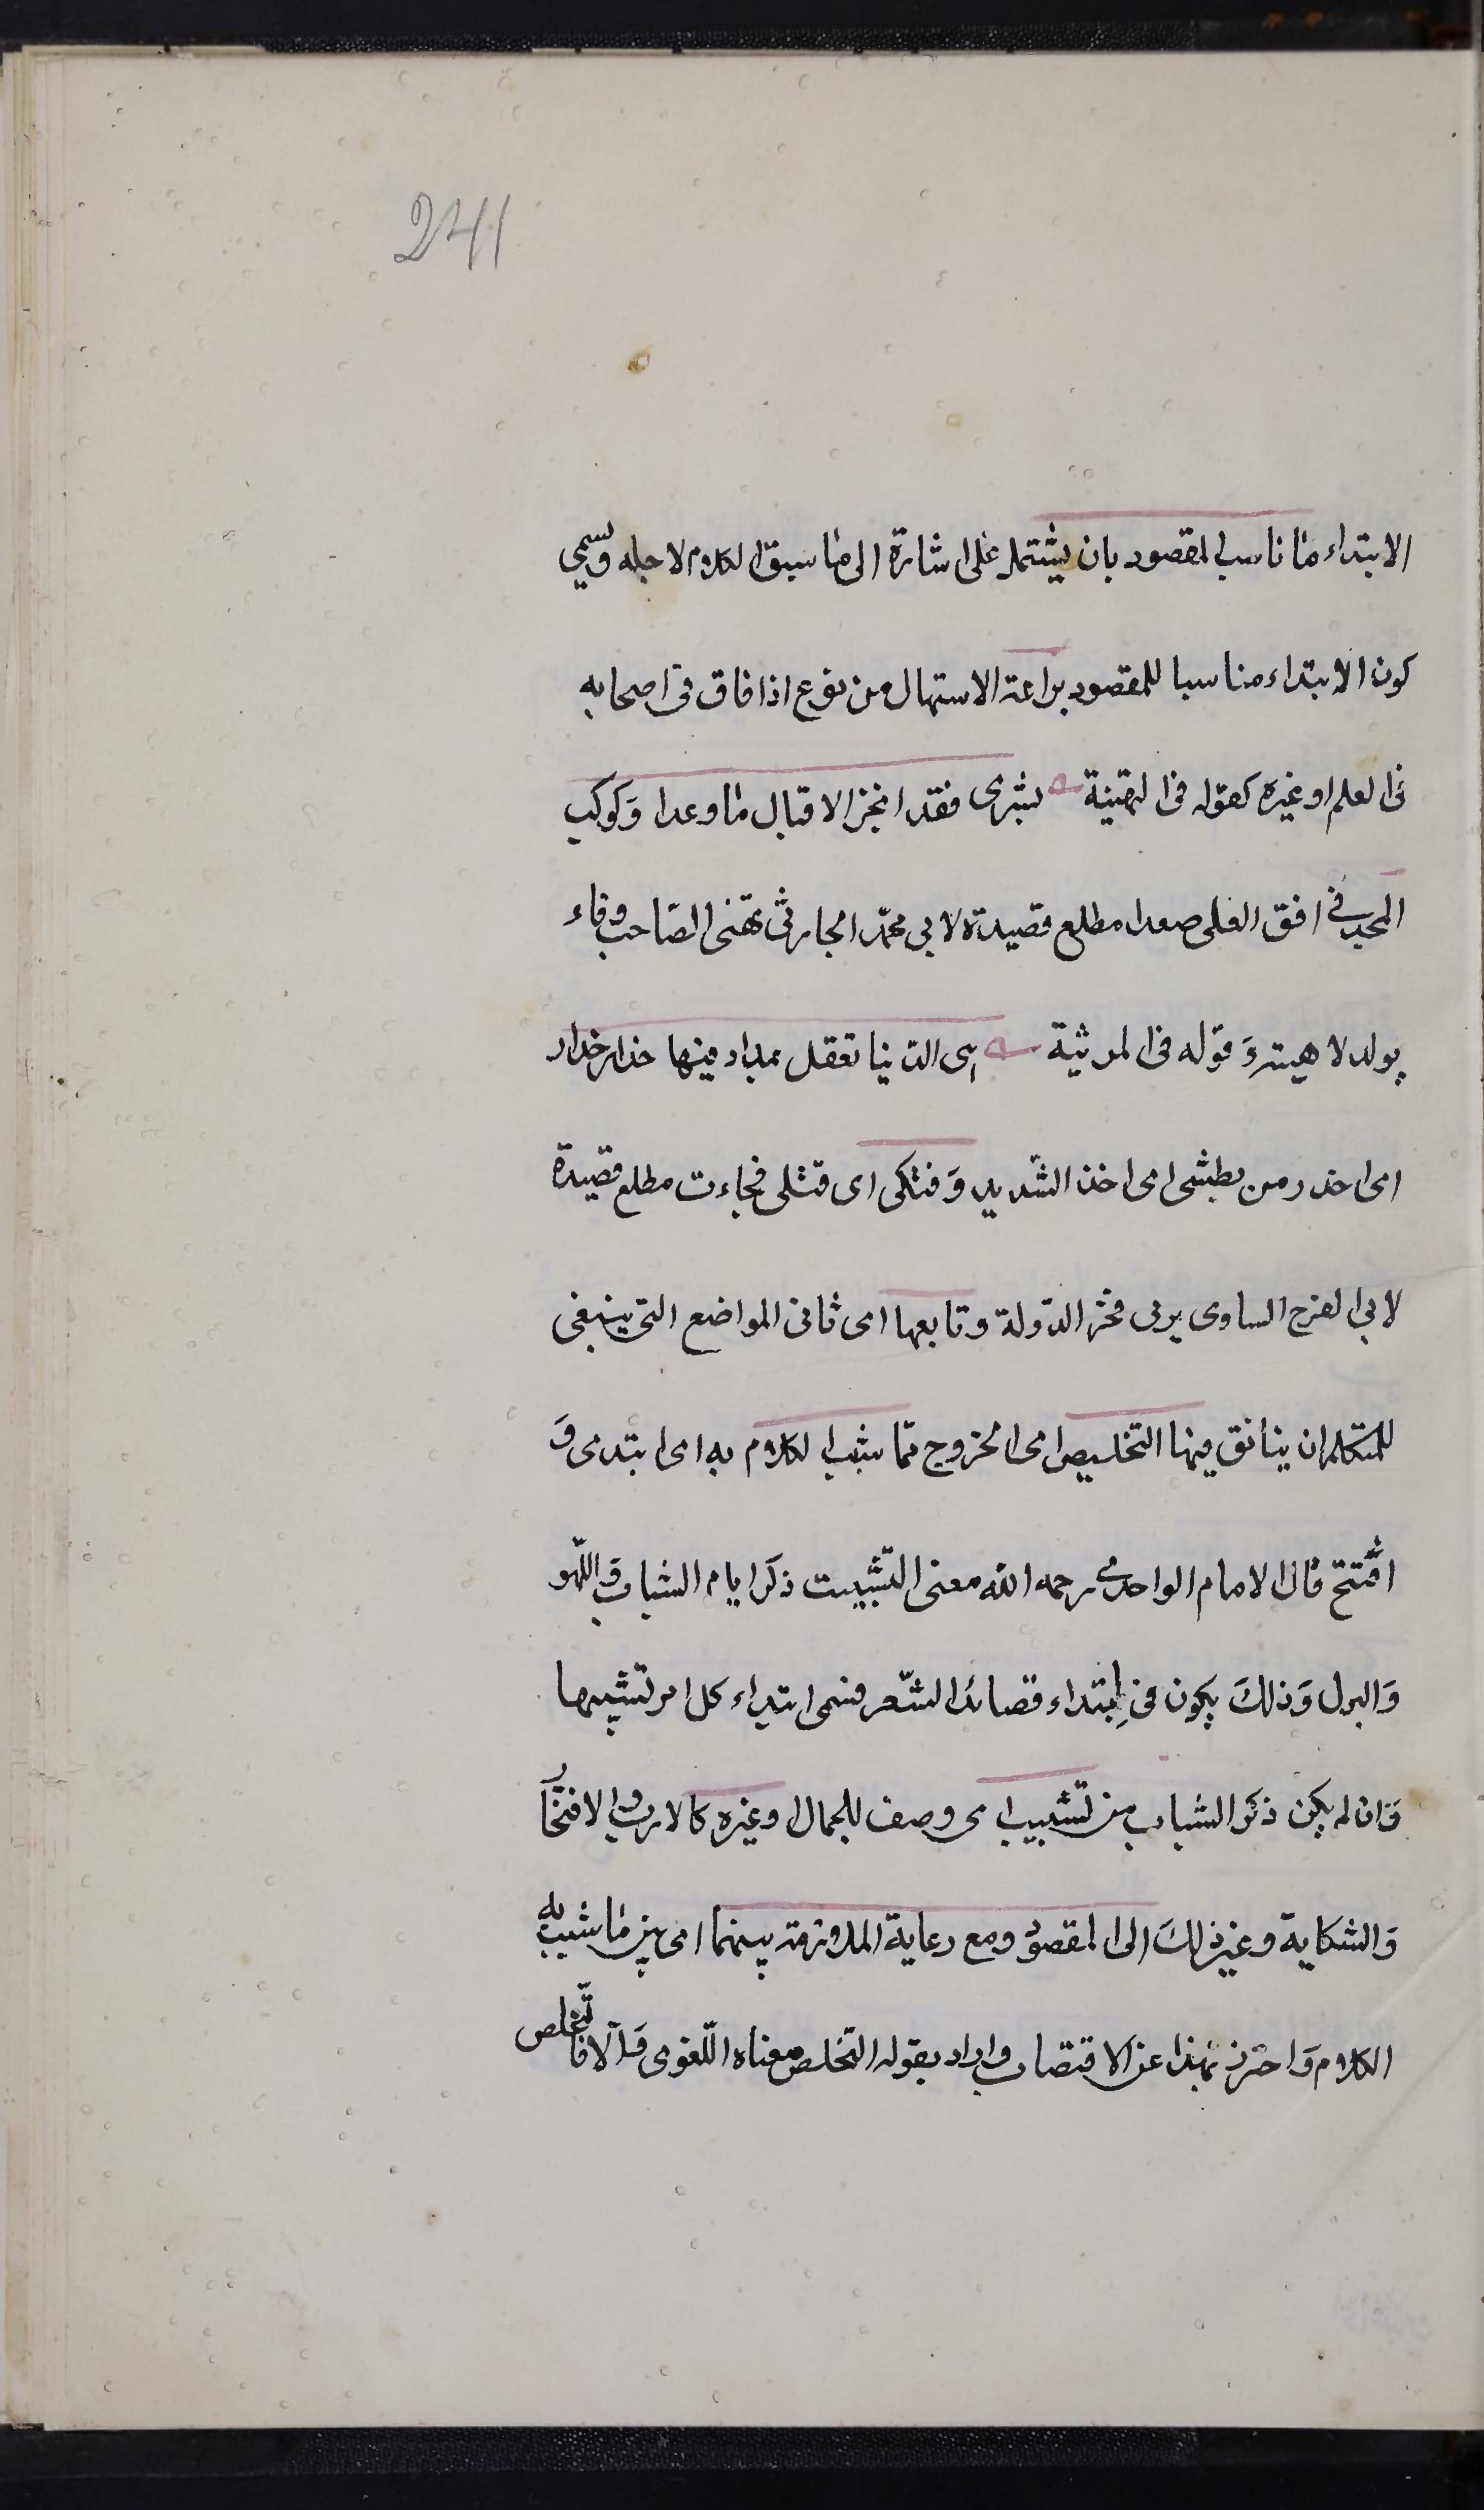 241
الابتداء ما ناسب المقصود بان يشتمل على اشارة الى ما سيق الكلام لاجله ويسمى
كون الابتداء مناسبا للمقصود براعة الاستهلال من برع اذا فاق فى اصحابه
فى العلم او غيره كقوله فى التهنية بشرى فقد انجز الاقبال ما وعدا وَكوكب
المجد فى افق العلى صعدا مطلع قصيدة لابى محمّد الخازن يهنى الصّاحب
بولد لا هيته وَقوله فى المرثية هى الدنيا تقول بملاء فيها حذار حذار
اى احذر من بطشى اى اخذ الشديد وَفتكى اى قتلى فجاءت مطلع قصيدة
لابى الفرج الساوى يرثى فخر الدّولة وثانيها اى ثانى المواضع التى ينبغى
للمتكلم ان يتانق فيها التخليص اى الخروج ممّا شبب الكلام به اى ابتدى وَ
افتتح قال الامام الواحدى رحمه الله معنى التشبيب ذكر ايام الشباب وَاللّهو
وَالغزل وَذلكَ يكون فى اِبتداء قصائد الشّعر فسمى ابتداء كل امر تشبيها
وَان لم يكن ذكر الشباب من تشبيب اى وصف للجمال او غيره كالادب والافتخار
وَالشكاية وغير ذلكَ الى المقصود ومع رعاية الملاومة بينهما اى بين ما شبب به
الكلام وَاحترز بهذا عن الاقتضاب واراد بقوله التخلص معناه اللّغوى وَالّا فالتّخلص